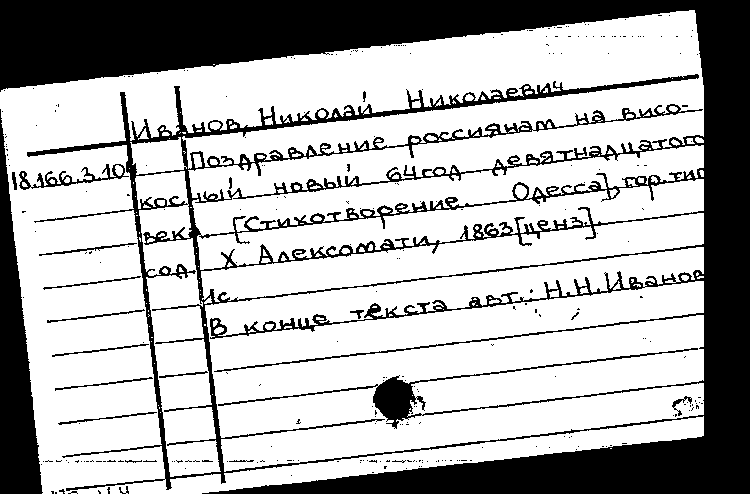 Иванов, Николай Николаевич
18.166.3.104 Поздравление россиянам на висо-
косный новый 64 год девятнадцатого
века. [Стихотворение. Одесса], гор. тип.
сод. Х. Алексомати, 1863 [ценз].
1с.
В конце текста авт.: Н.Н.Иванов